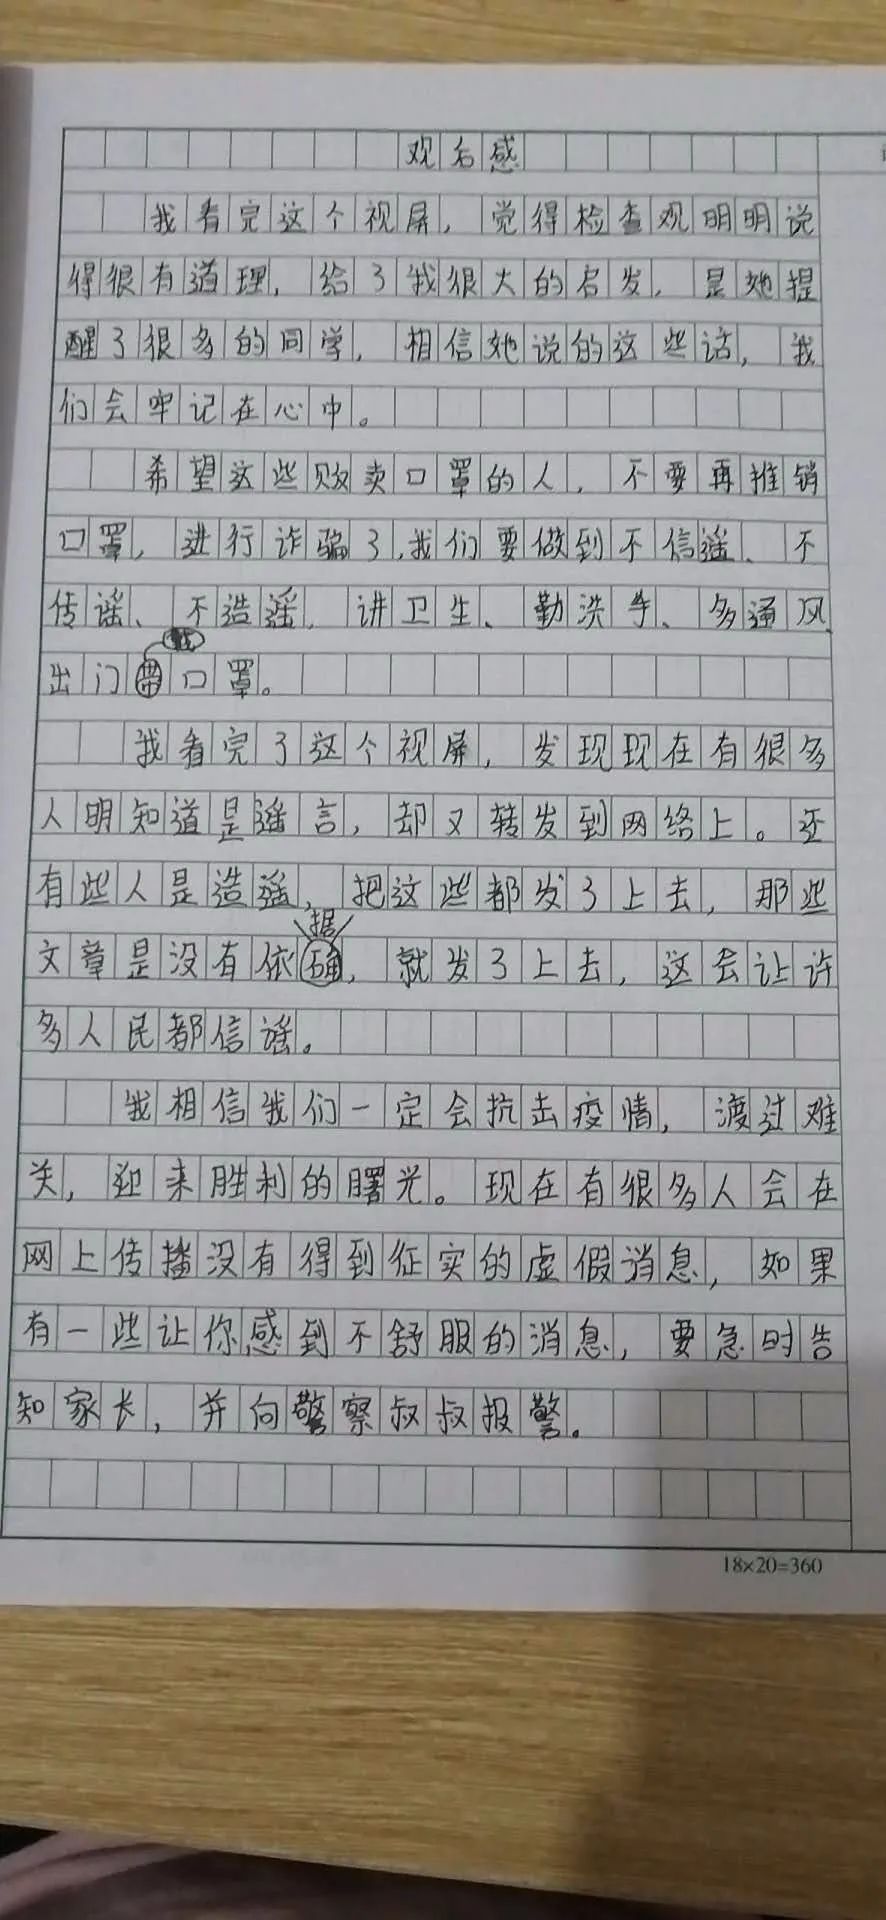 观后感
我看完这个视屏，觉得检查观明明说
得很有道理，给了我很大的启发，是她提
醒了很多的同学，相信她说的这些话，我
们会牢记在心中。
希望这些败卖口罩的人，不要再推销
口罩，进行诈骗了，我们要做到不信谣、不
传谣、不造谣，讲卫生、勤洗手、多通风，
戴
出门带口罩。
我看完了这个视屏，发现现在有很多
人明知道是谣言，却又转发到网络上。还
有些人是造谣，把这些都发了上去，那些
据
文章是没有依确，就发了上去，这会让许
多人民都信谣。
我相信我们一定会抗击疫情，渡过难
关，迎来胜利的曙光。现在有很多人会在
网上传播没有得到征实的虚假消息，如果
有一些让你感到不舒服的消息，要急时告
知家长，并向警察叔叔报警。
18×20=360